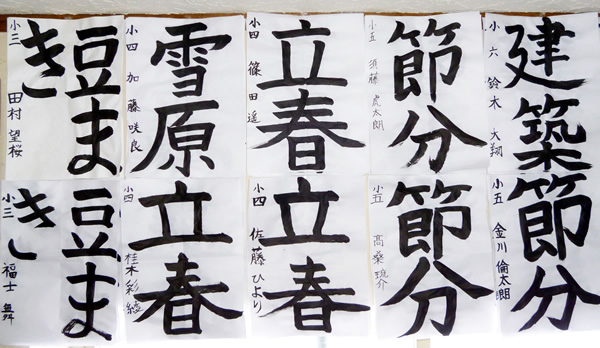 建築
小六 鈴木 大翔
節分
小五 須藤 虎太朗
立春
小四 篠田 遥
雪原
小四 加藤 咲良
豆ま
き
小三 田村 望桜
節分
小五 金川 倫太朗
節分
小五 高桑 琉介
立春
小四 佐藤 ひより
立春
小四 桂木 彩綾
豆ま
き
小三 福士